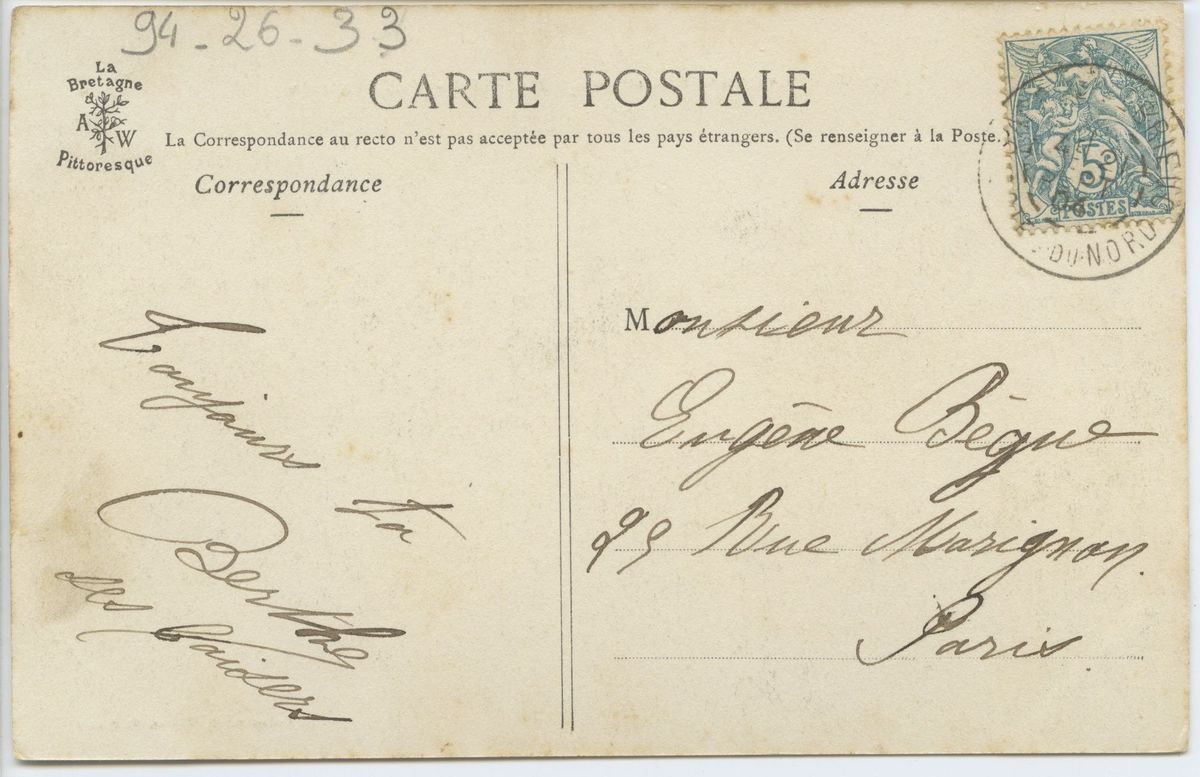 94-26-33
La
Bretagne
A W
Pittoresque
CARTE POSTALE
La Correspondance au recto n'est pas acceptée par tous les pays étrangers. (Se renseigner à la Poste.)
Correspondance
Toujours
ta
Berthe
des baisers
Adresse
5
POSTES
DU-NORD
Monsieur
Eugène Bègue
25 Rue Marignan
Paris